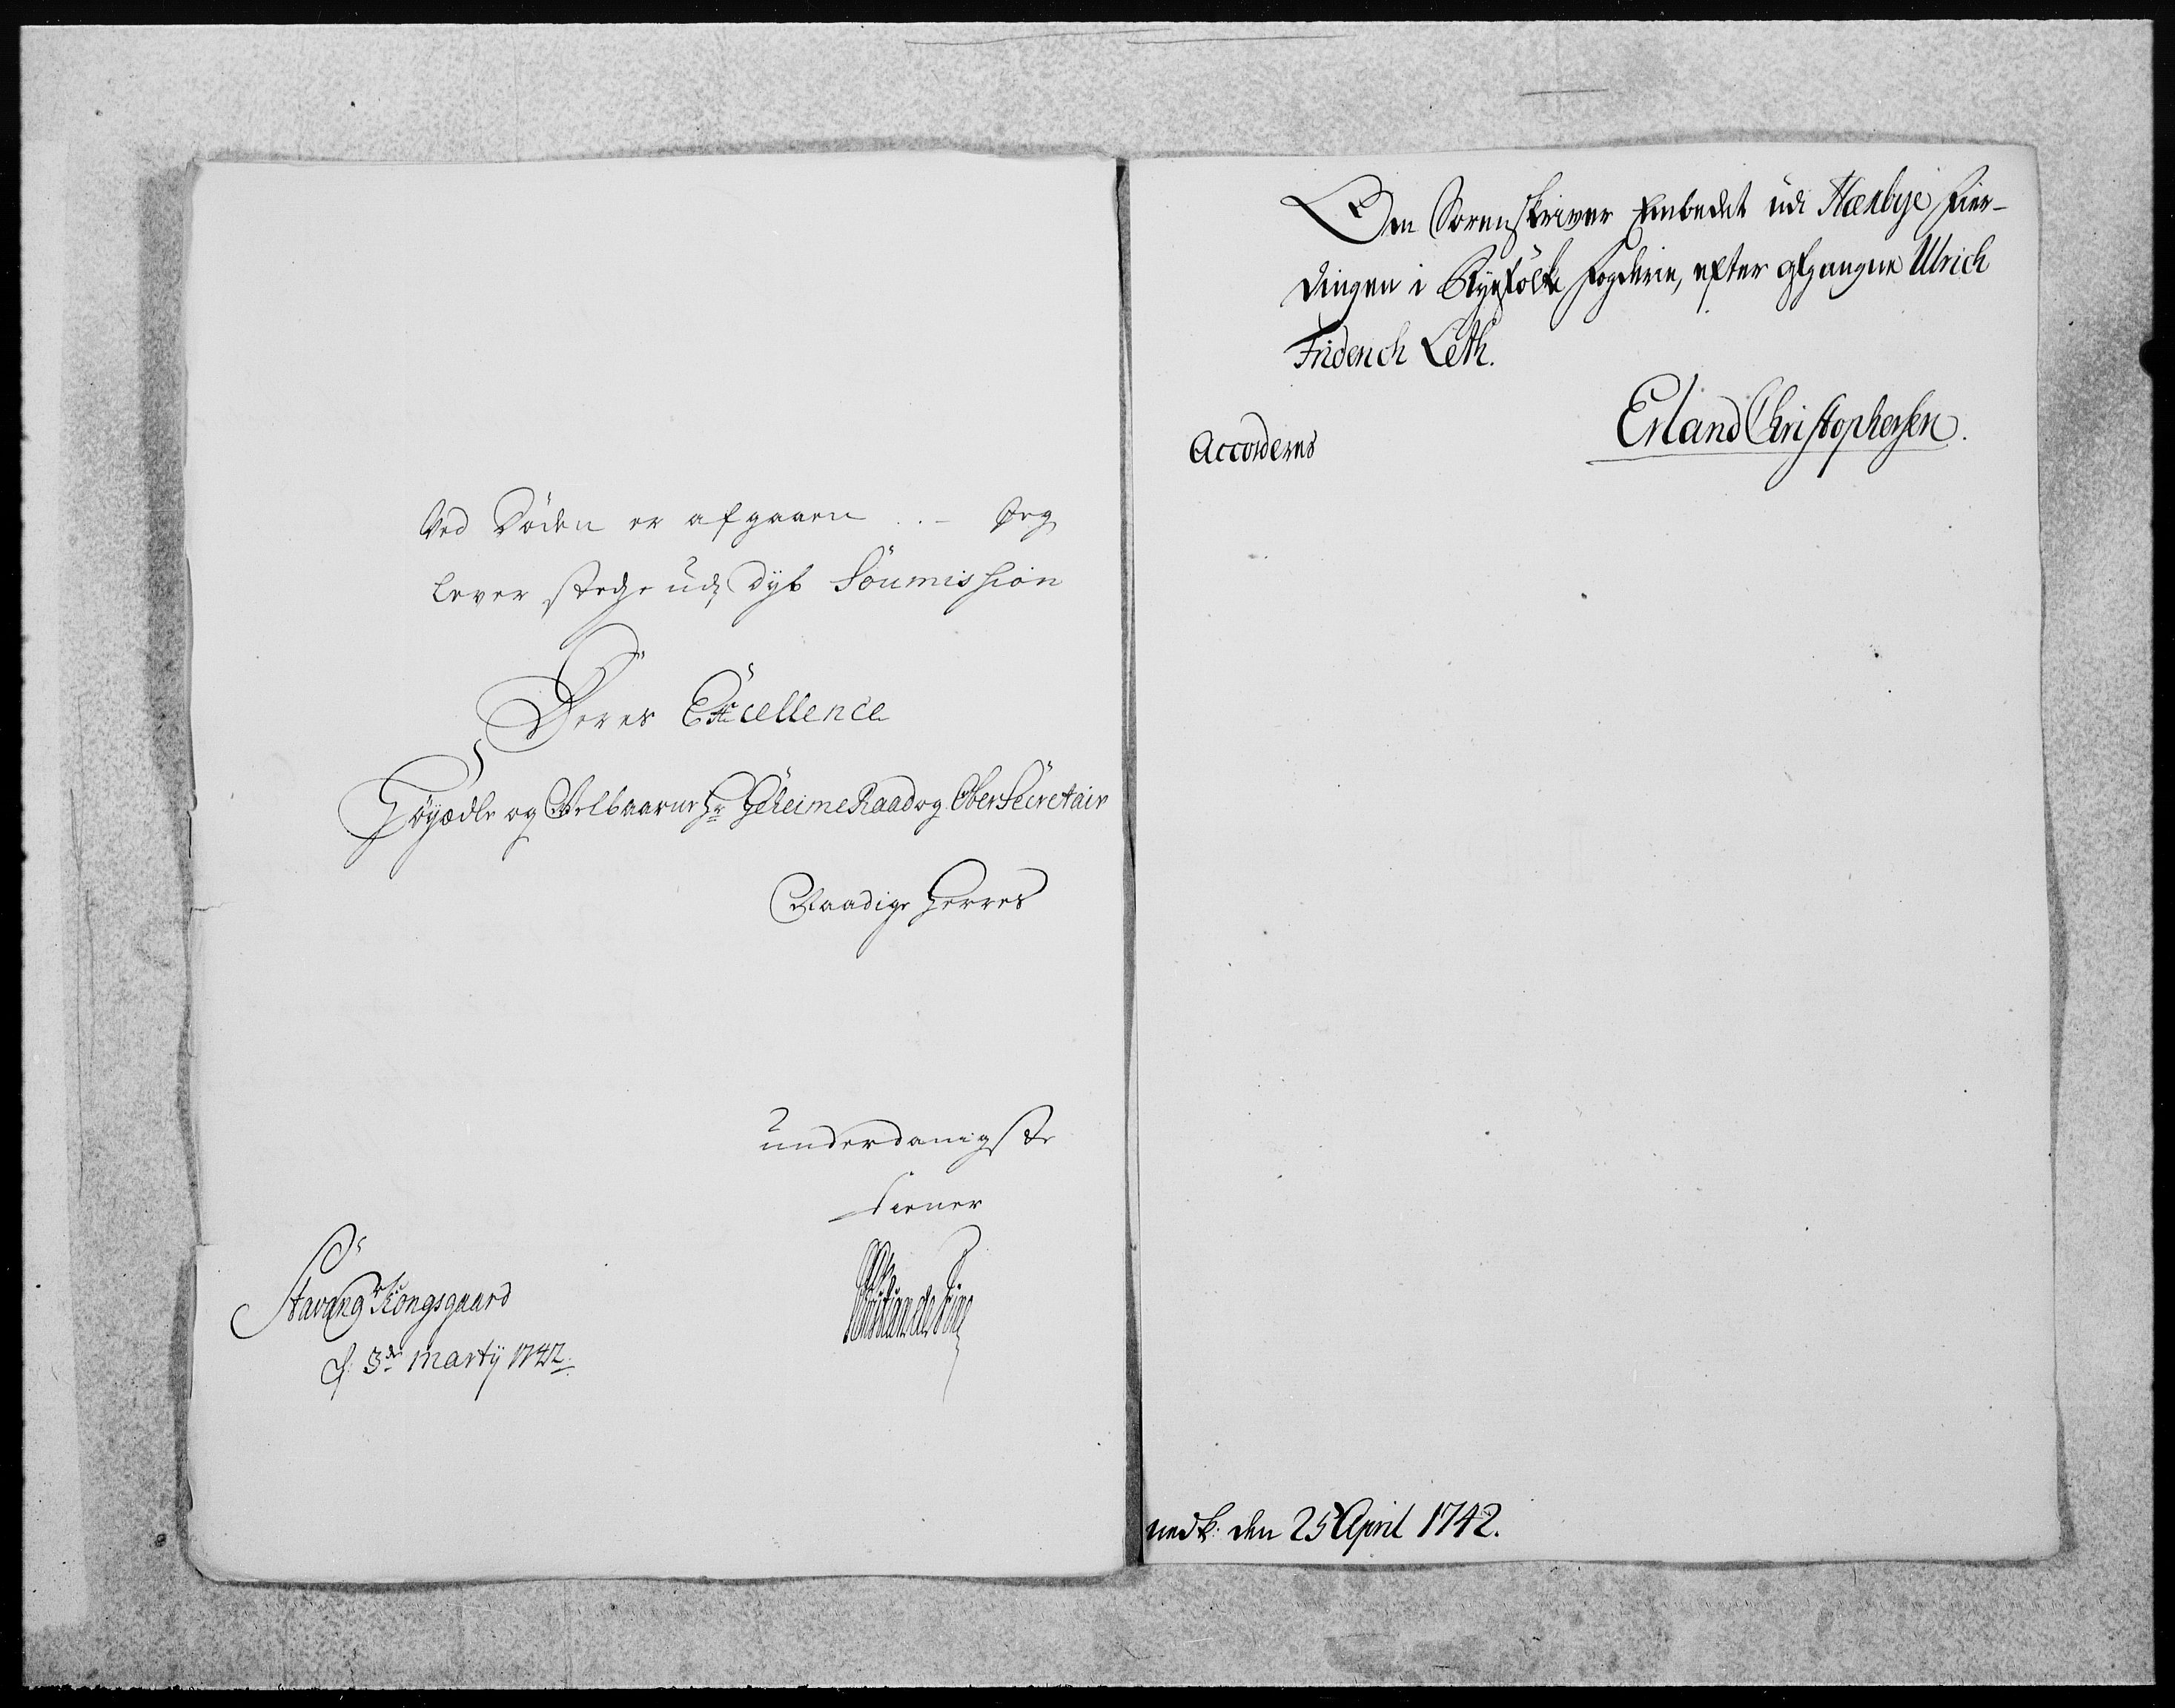 Ved Döden er afgaaen . . – Jeg
lever stedse udj dyb Soumission
Deres Excellence
Höyædle og Velbaarne Hr Geheime Raad og Ober Secretair
Naadige Herres
underdanigste
tiener
Stavangr Kongsgaard
d: 3de Martÿ 1742.
Den Sorenskriver Embedet udi Hæsbye Fier-
dingen i Ryefölke Fogderie, efter afgangne Ulrich
Friderich Leth.
Erland Christophersen.
Accorderes
nedk: den 25 April 1742.